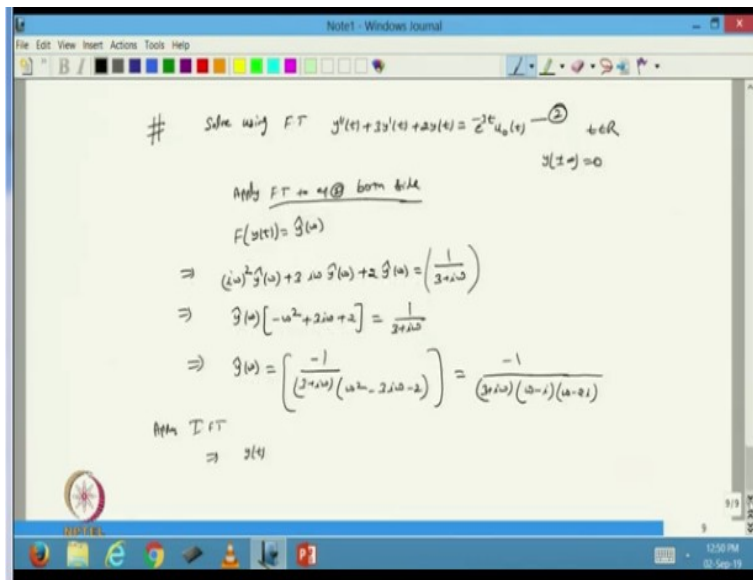 Note1 - Windows Journal
File Edit View Insert Actions Tools Help
B I
# Solve using FT y''(t)+3y'(t)+2y(t) = e^{-3t} u_0(t) —② t∈R
y(±∞)=0
Apply FT to eq ② both side
F(y(t)) = ŷ(ω)
⇒ (iω)^2 ŷ(ω) + 3 iω ŷ(ω) + 2 ŷ(ω) = (1/(3+iω))
⇒ ŷ(ω) [-ω^2 + 3iω + 2] = 1/(3+iω)
⇒ ŷ(ω) = [-1/((3+iω)(ω^2 - 3iω - 2))] = -1/((3+iω)(ω-i)(ω-2i))
Apply IFT
⇒ y(t)
NPTEL
9/9
9
12:50 PM
02-Sep-19